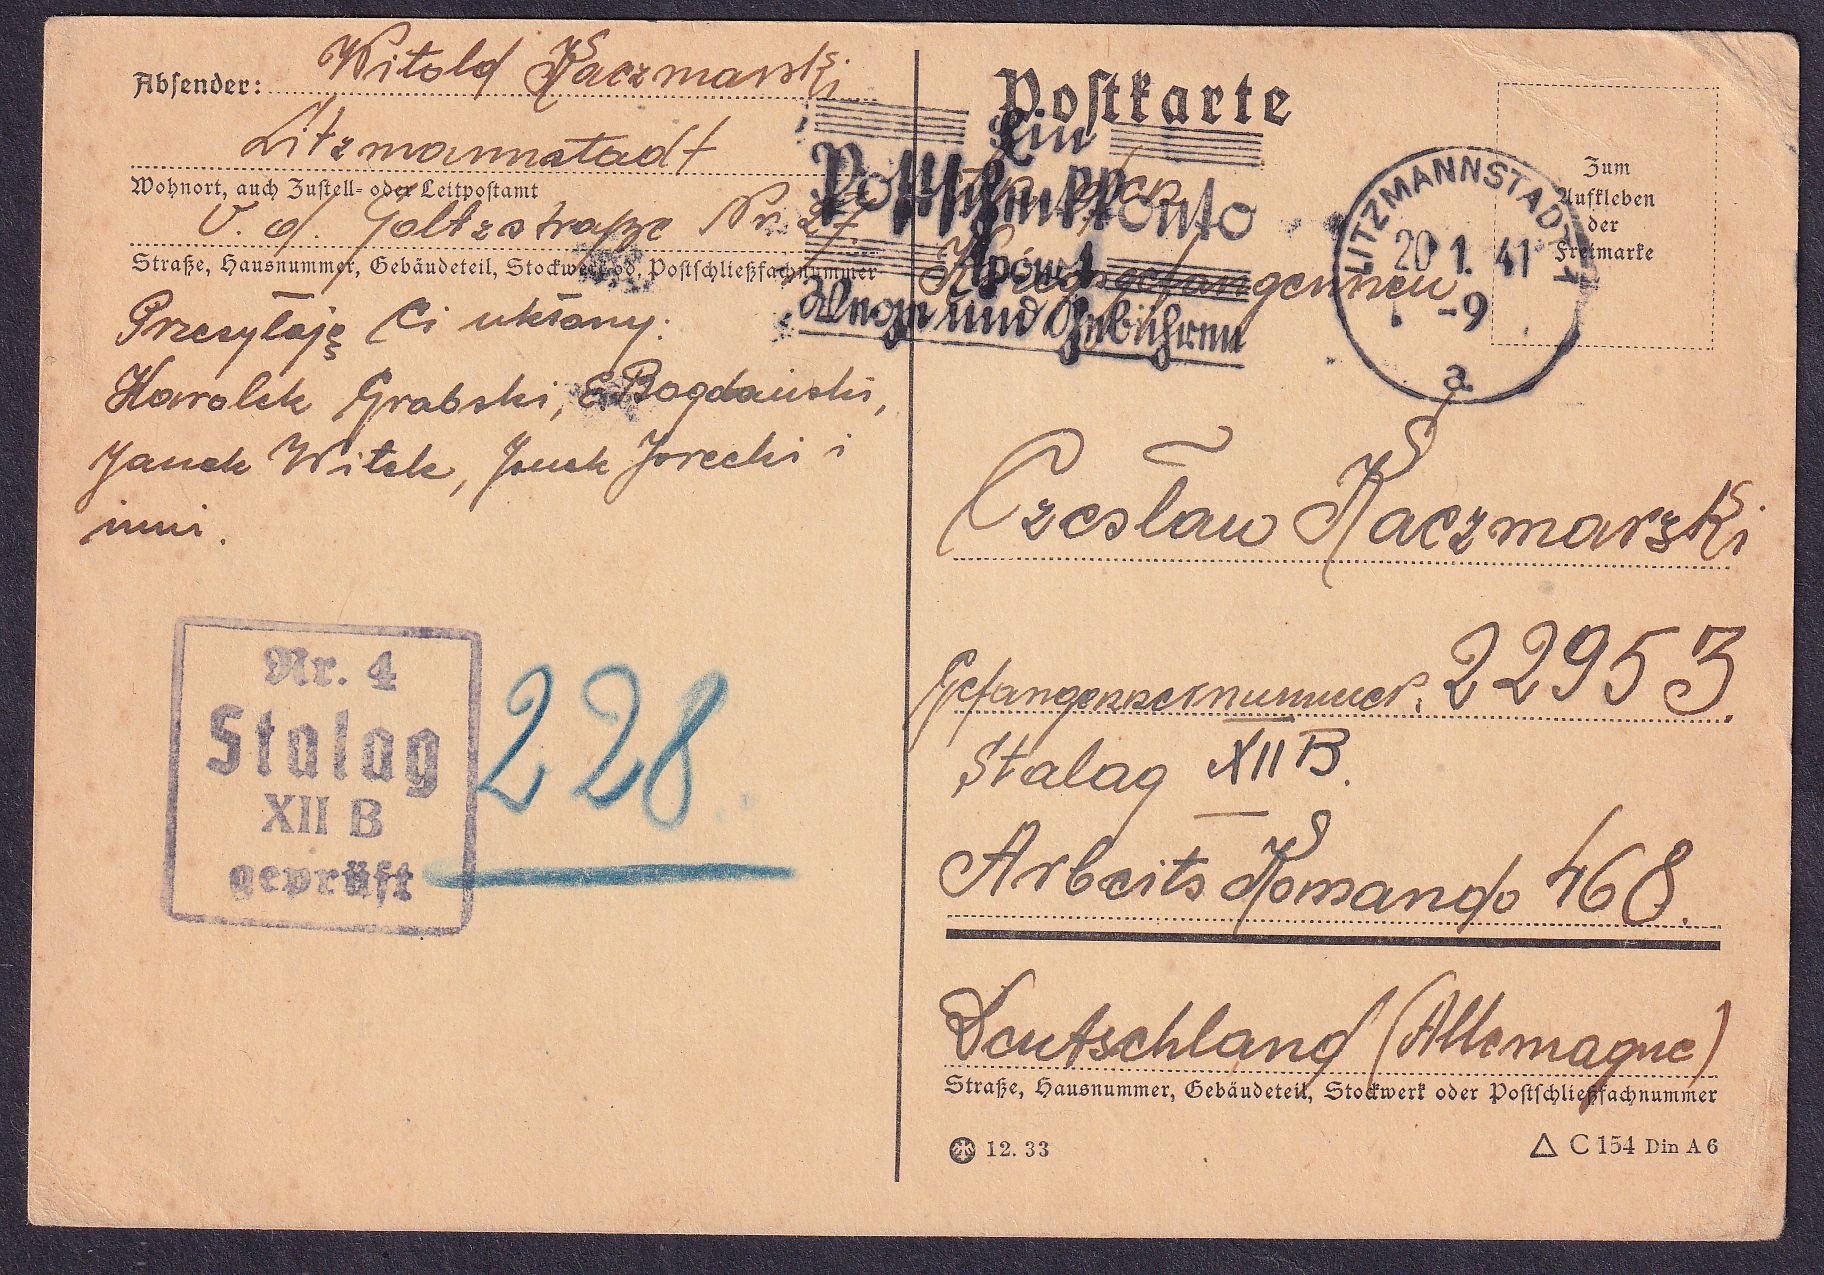 Absender: Witold Kaczmarski
Litzmannstadt
Wohnort, auch Zustell- oder Leitpostamt
V. d. Goltzstraße Nr. 27.
Straße, Hausnummer, Gebäudeteil, Stockwerk od. Postschließfachnummer
Przesyłają Ci ukłony:
Karolek Grabski, E. Bogdański,
Janek Witek, Jorecki i
inni.
Nr. 4
Stalag
XII B
geprüft
228
Postkarte
Ein
Postscheckkonto
spart
Wege und Gebühren
Kriegsgefangennen
LITZMANNSTADT 1
20. 1. 41
-9
a
Zum
Aufkleben
der
Freimarke
Czesław Kaczmarski
Gefangenernummer: 22953.
Stalag XII B.
Arbeits Komando 468.
Deutschland (Allemagne)
Straße, Hausnummer, Gebäudeteil, Stockwerk oder Postschließfachnummer
12. 33
C 154 Din A 6